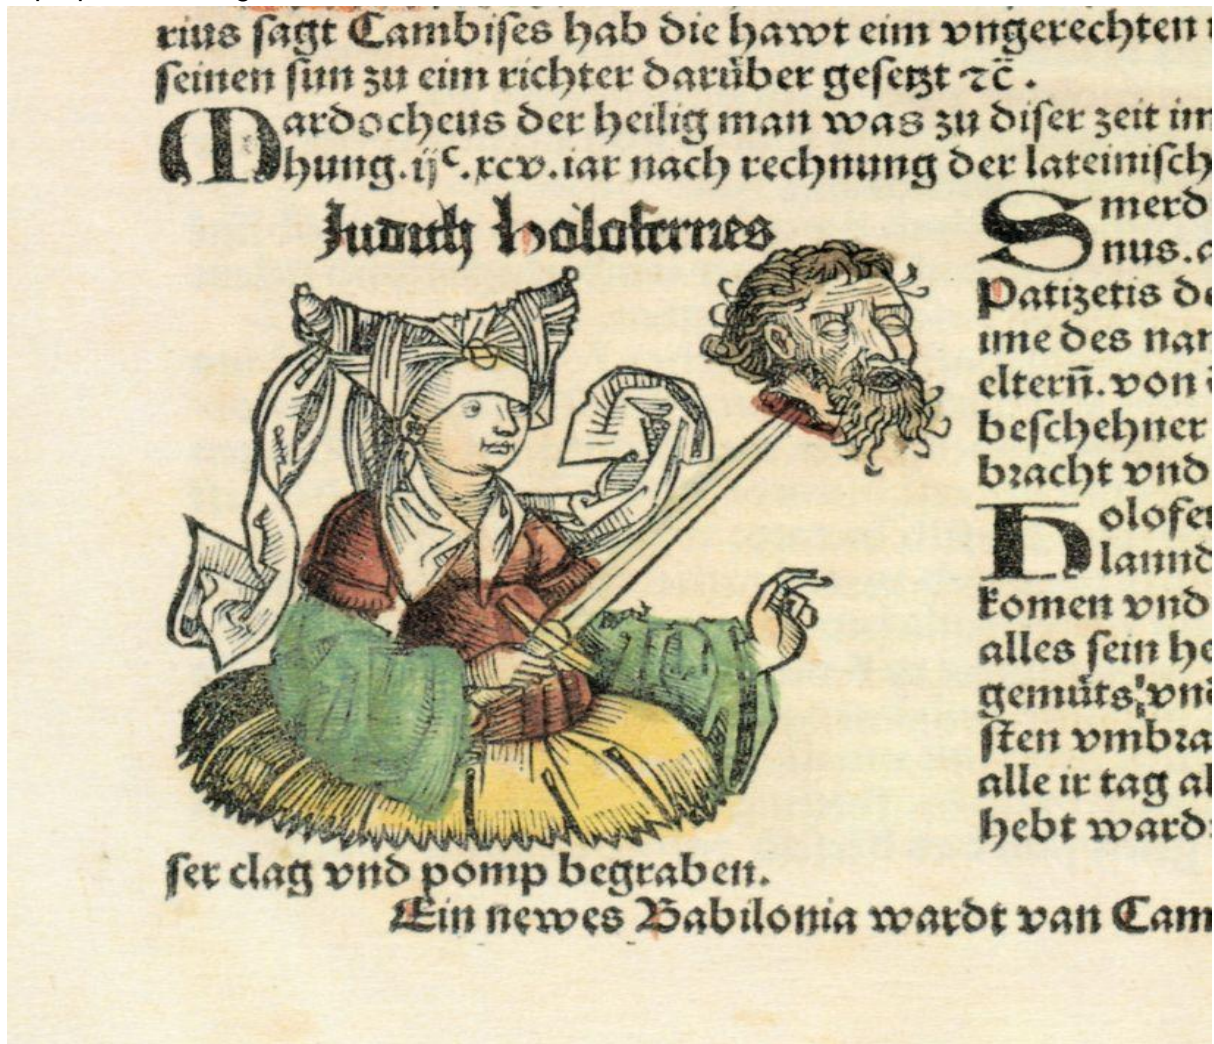 rius sagt Cambises hab die hawt eim vngerechten
seinen sun zu eim richter darüber gesetzt ⁊c̄.
Mardocheus der heilig man was zu diser zeit im
hung.ijᶜ.xcv.iar nach rechnung der lateinisch
Judith Holofernes
Smerd
nus.
Patizetis de
ime des nan
elterñ. von
beschehner
bracht vnd
Holofer
lannd
komen vnd
alles sein he
gemüts, vnd
sten vmbra
alle ir tag al
hebt ward
ser clag vnd pomp begraben.
Ein newes Babilonia wardt van Cam